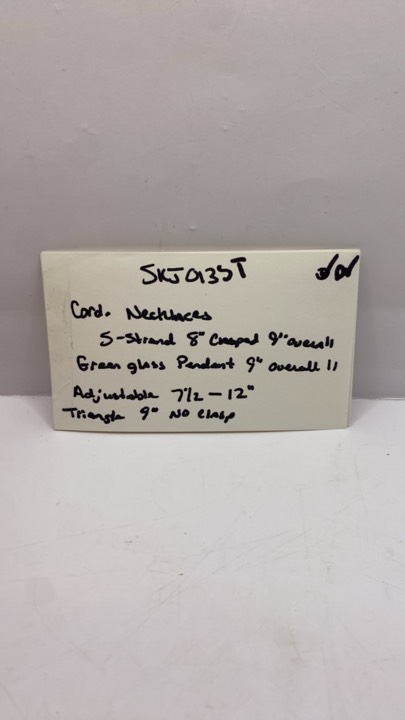 SKJ0935T
Cord. Necklaces
5-Strand 8" Clasped 9" overall
Green glass Pendant 9" overall 11
Adjustable 7 1/2 - 12"
Triangle 9" NO Clasp